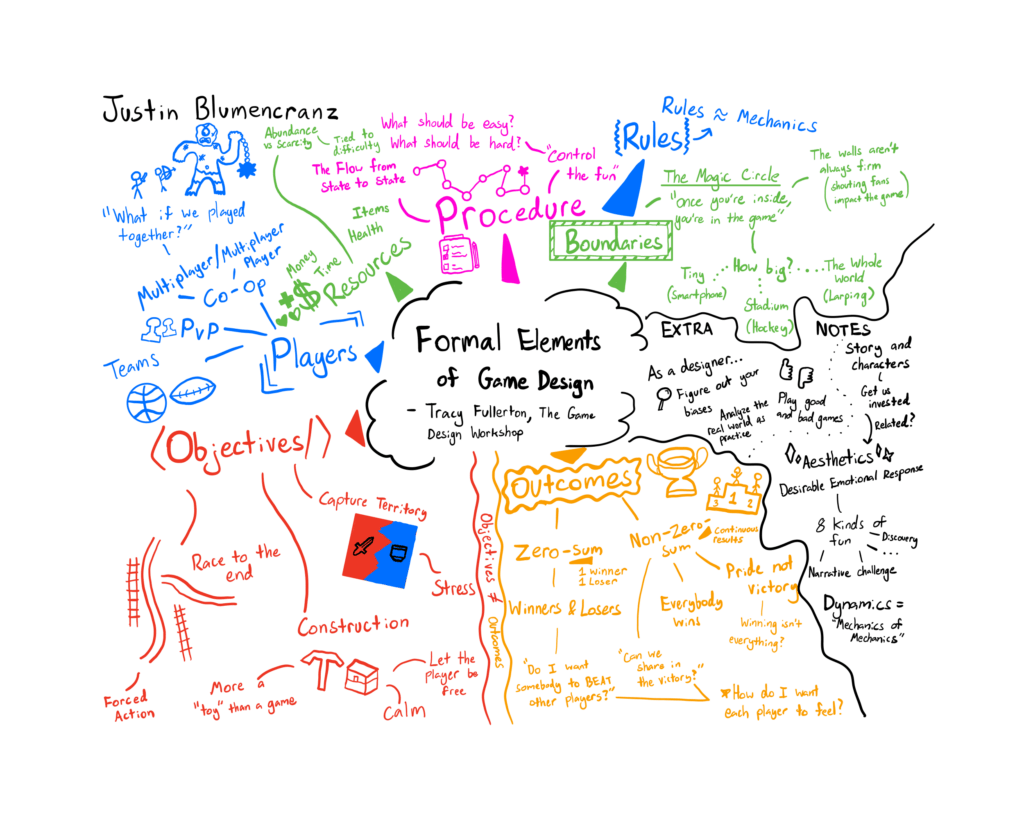 Justin Blumencranz
Formal Elements
of Game Design
- Tracy Fullerton, The Game
Design Workshop
Rules
Rules ≈ Mechanics
Procedure
What should be easy?
What should be hard?
"Control
the fun"
The Flow from
State to State
Boundaries
The Magic Circle
"Once you're inside,
you're in the game"
The walls aren't
always firm
(shouting fans
impact the game)
How big?
Tiny
(Smartphone)
Stadium
(Hockey)
The Whole
World
(Larping)
Resources
Abundance
vs Scarcity
Tied to
difficulty
Items
Health
Money
Time
$
Players
"What if we played
together?"
Multiplayer/Multiplayer
Player
Co-Op
PvP
Teams
<Objectives/>
Capture Territory
Stress
Race to the
end
Forced
Action
Construction
More a
"toy" than a game
Let the
player be
free
Calm
Objectives ≠ Outcomes
Outcomes
3 1 2
Zero-Sum
1 Winner
1 Loser
Winners & Losers
"Do I want
somebody to BEAT
other players?"
Non-Zero-
Sum
Continuous
results
"Can we
share in
the victory?"
Everybody
wins
Pride not
victory
Winning isn't
everything?
How do I want
each player to feel?
EXTRA NOTES
As a designer...
Figure out your
biases
Analyze the
real world as
practice
Play good
and bad games
Story and
characters
Get us
invested
Related?
Aesthetics
Desirable Emotional Response
8 kinds of
fun
Discovery
...
Narrative challenge
Dynamics =
"Mechanics of
Mechanics"